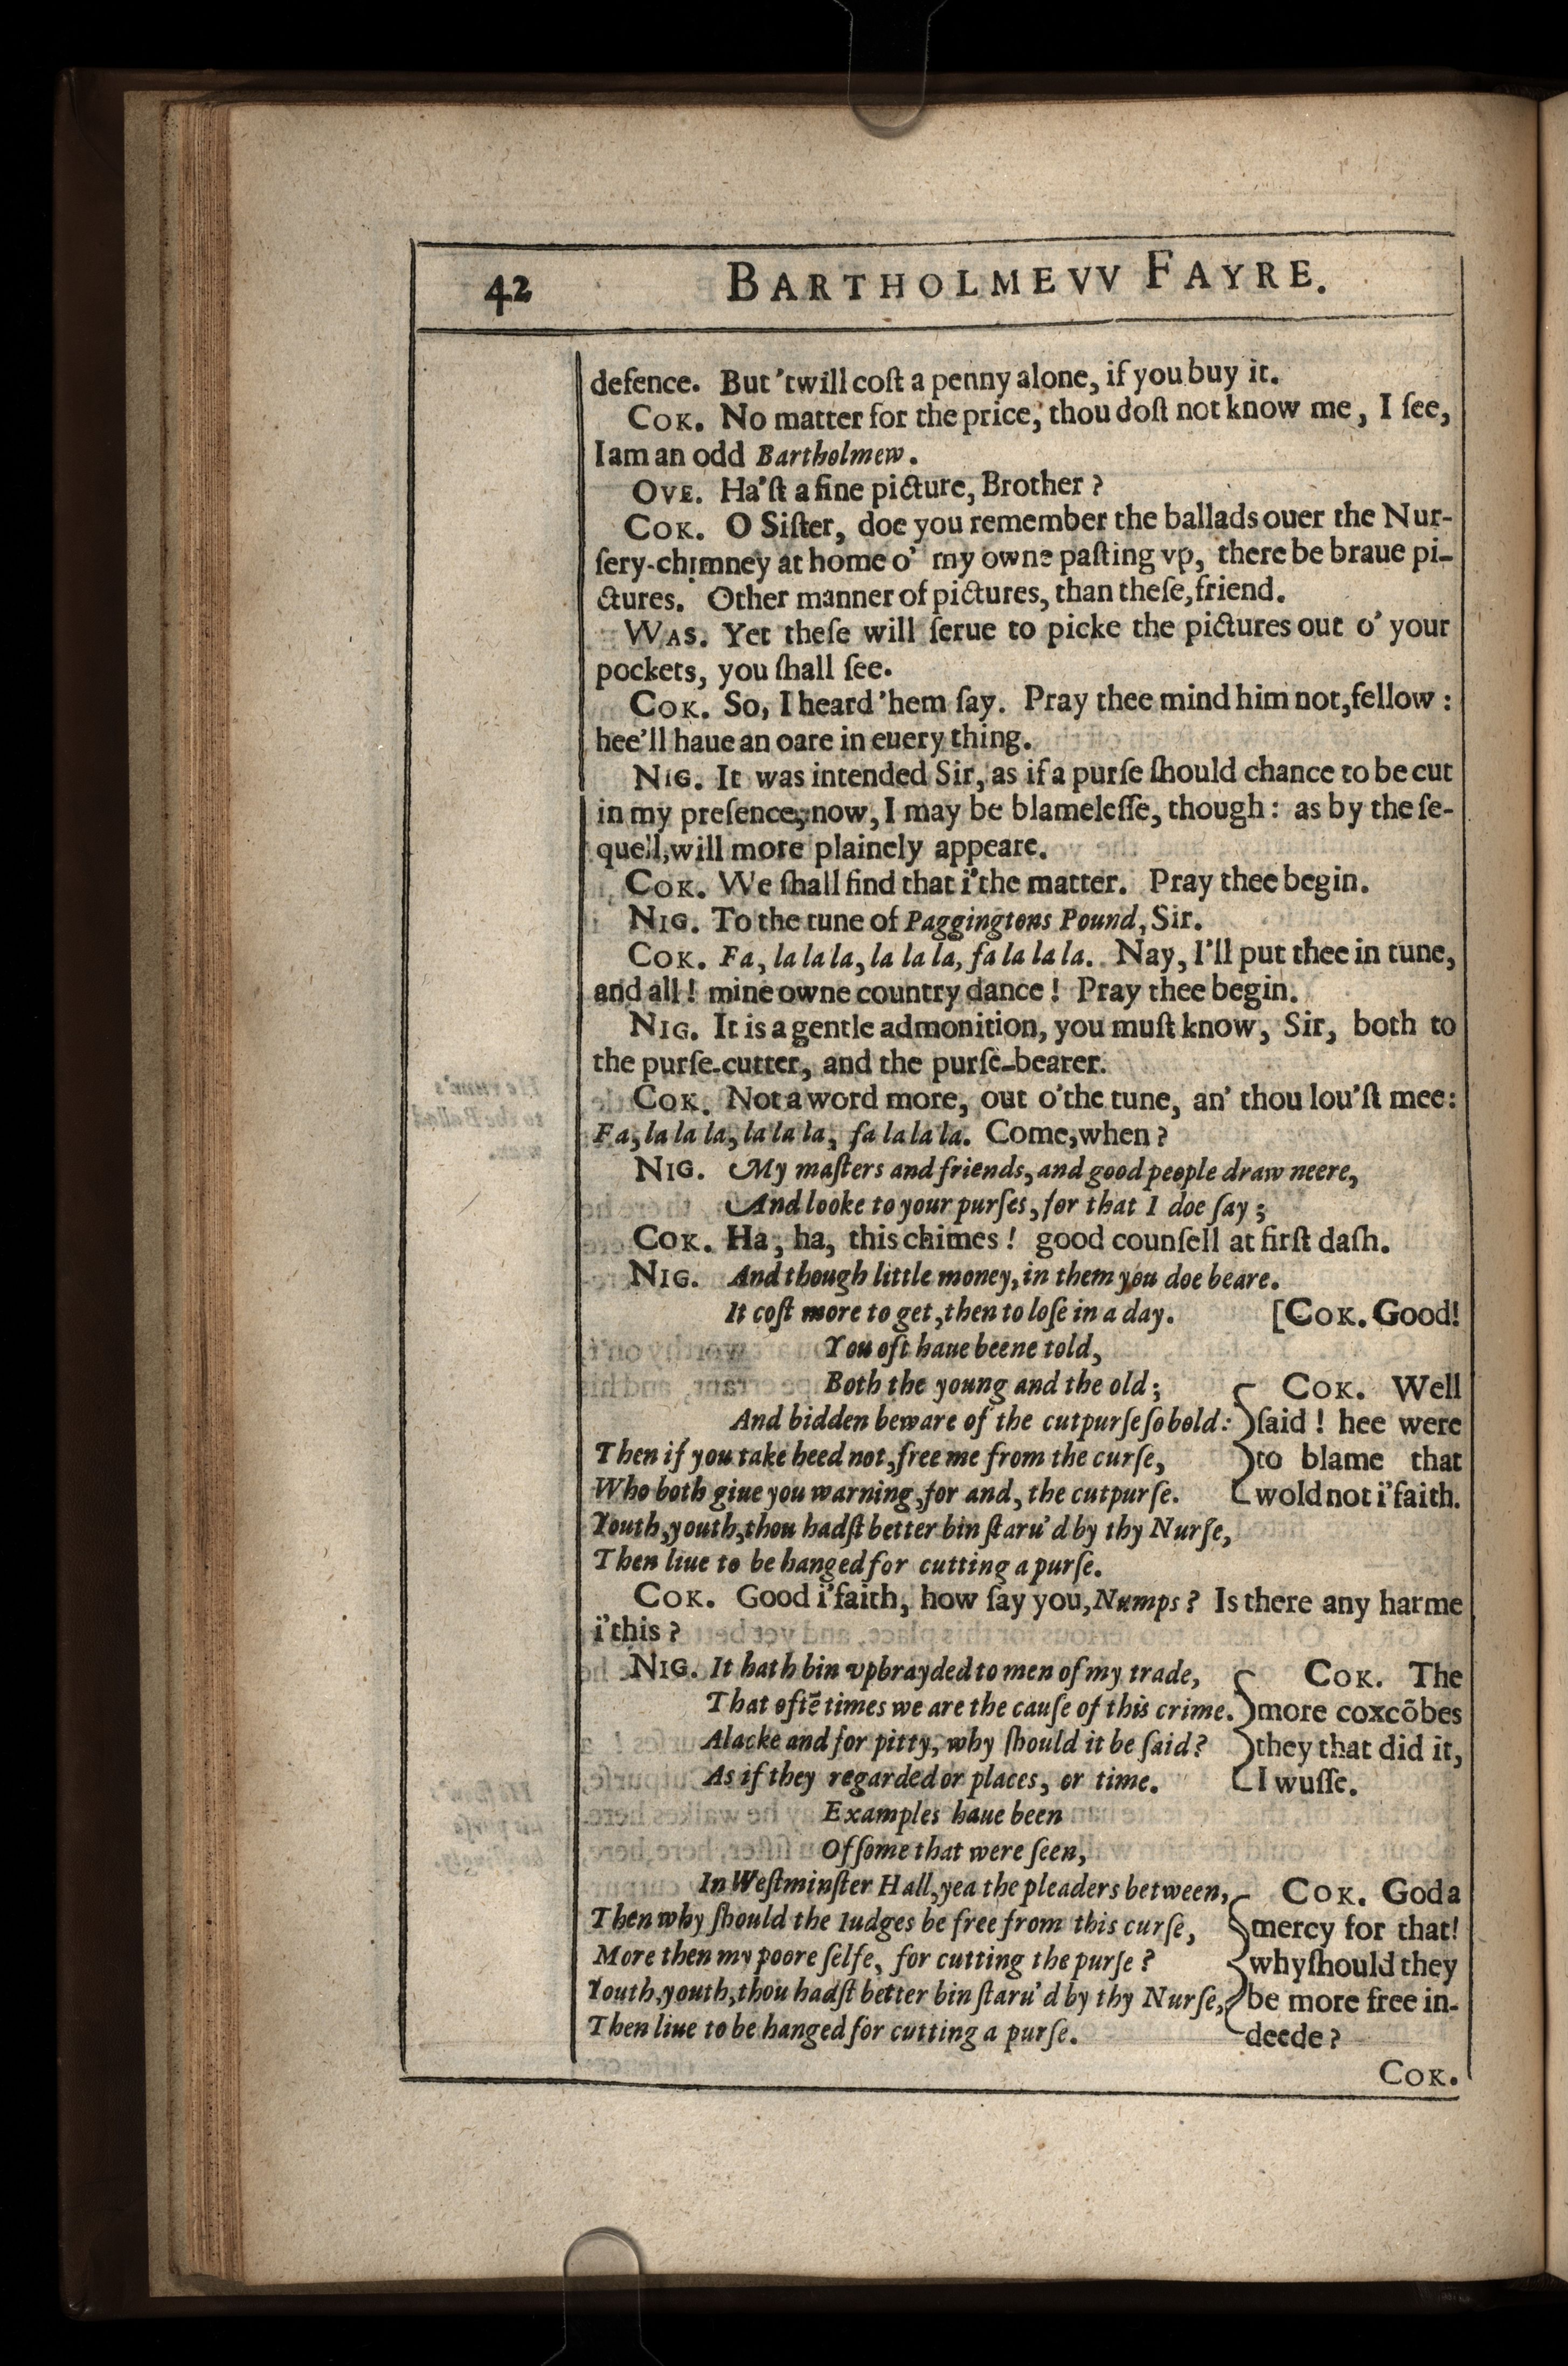 42
BARTHOLMEVV FAYRE.
defence. But 'twill coſt a penny alone, if you buy it.
COK. No matter for the price, thou doſt not know me, I ſee,
I am an odd Bartholmew.
OVE. Ha'ſt a fine picture, Brother?
COK. O Siſter, doe you remember the ballads ouer the Nur-
ſery-chimney at home o' my owne paſting vp, there be braue pi-
ctures. Other manner of pictures, than theſe, friend.
WAS. Yet theſe will ſerue to picke the pictures out o' your
pockets, you ſhall ſee.
COK. So, I heard 'hem ſay. Pray thee mind him not, fellow:
hee'll haue an oare in euery thing.
NIG. It was intended Sir, as if a purſe ſhould chance to be cut
in my preſence, now, I may be blameleſſe, though: as by the ſe-
quell, will more plainely appeare.
COK. We ſhall find that i'the matter. Pray thee begin.
NIG. To the tune of Paggingtons Pound, Sir.
COK. Fa, la la la, la la la, fa la la la. Nay, I'll put thee in tune,
and all! mine owne country dance! Pray thee begin.
NIG. It is a gentle admonition, you muſt know, Sir, both to
the purſe-cutter, and the purſe-bearer.
COK. Not a word more, out o'the tune, an' thou lou'ſt mee:
Fa, la la la, la la la, fa la la la. Come, when?
NIG. My maſters and friends, and good people draw neere,
And looke to your purſes, for that I doe ſay;
COK. Ha, ha, this chimes! good counſell at firſt daſh.
NIG. And though little money, in them you doe beare.
It coſt more to get, then to loſe in a day. [COK. Good!
You oft haue beene told,
Both the young and the old;
And bidden beware of the cutpurſe ſo bold:
Then if you take heed not, free me from the curſe,
Who both giue you warning, for and, the cutpurſe.
COK. Well
ſaid! hee were
to blame that
wold not i'faith.
Youth, youth, thou hadſt better bin ſtaru'd by thy Nurſe,
Then liue to be hanged for cutting a purſe.
COK. Good i'faith, how ſay you, Numps? Is there any harme
i'this?
NIG. It hath bin vpbrayded to men of my trade,
That oftē times we are the cauſe of this crime.
Alacke and for pitty, why ſhould it be ſaid?
As if they regarded or places, or time.
COK. The
more coxcōbes
they that did it,
I wuſſe.
Examples haue been
Of ſome that were ſeen,
In Weſtminſter Hall, yea the pleaders between,
Then why ſhould the Iudges be free from this curſe,
More then my poore ſelfe, for cutting the purſe?
Youth, youth, thou hadſt better bin ſtaru'd by thy Nurſe,
Then liue to be hanged for cutting a purſe.
COK. God a
mercy for that!
why ſhould they
be more free in-
deede?
COK.